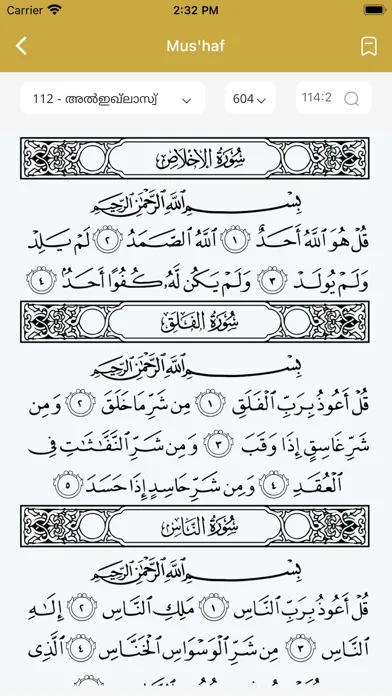 Carrier 2:32 PM
Mus'haf
112 - അൽഇഖ്‌ലാസ്വ് 604 114:2
سُورَةُ الإِخْلَاصِ
بِسْمِ اللَّهِ الرَّحْمَٰنِ الرَّحِيمِ
قُلْ هُوَ اللَّهُ أَحَدٌ ١ اللَّهُ الصَّمَدُ ٢ لَمْ يَلِدْ
وَلَمْ يُولَدْ ٣ وَلَمْ يَكُن لَّهُ كُفُوًا أَحَدٌ ٤
سُورَةُ الفَلَقِ
بِسْمِ اللَّهِ الرَّحْمَٰنِ الرَّحِيمِ
قُلْ أَعُوذُ بِرَبِّ الْفَلَقِ ١ مِن شَرِّ مَا خَلَقَ ٢ وَمِن
شَرِّ غَاسِقٍ إِذَا وَقَبَ ٣ وَمِن شَرِّ النَّفَّٰثَٰتِ فِي
الْعُقَدِ ٤ وَمِن شَرِّ حَاسِدٍ إِذَا حَسَدَ ٥
سُورَةُ النَّاسِ
بِسْمِ اللَّهِ الرَّحْمَٰنِ الرَّحِيمِ
قُلْ أَعُوذُ بِرَبِّ النَّاسِ ١ مَلِكِ النَّاسِ ٢ إِلَٰهِ
النَّاسِ ٣ مِن شَرِّ الْوَسْوَاسِ الْخَنَّاسِ ٤ الَّذِي